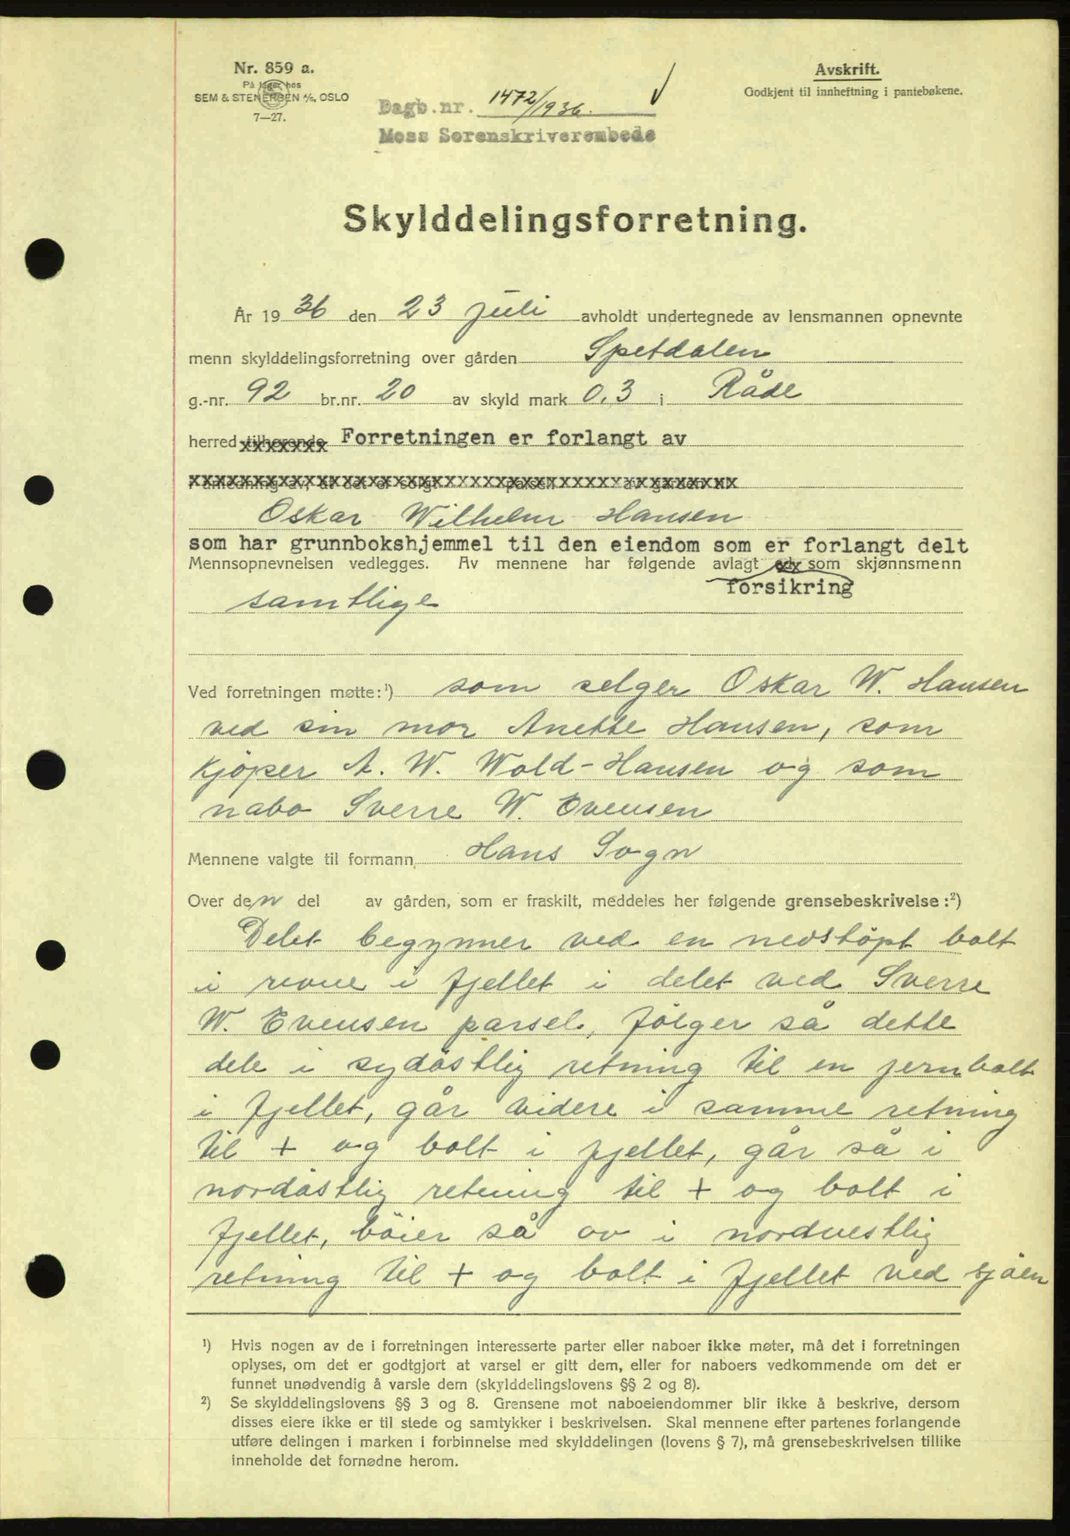 Nr. 859 a.
På lager hos
SEM & STENERSEN A/S, OSLO
7—27.
Dagb.nr. 1472/1936.
Moss Sorenskriverembede
Avskrift.
Godkjent til innheftning i pantebøkene.
Skylddelingsforretning.
År 1936 den 23 juli avholdt undertegnede av lensmannen opnevnte
menn skylddelingsforretning over gården Spetdalen
g.-nr. 92 br.nr. 20 av skyld mark 0,3 i Råde
herred tilhørende Forretningen er forlangt av
Oskar Wilhelm Hansen
som har grunnbokshjemmel til den eiendom som er forlangt delt
Mennsopnevnelsen vedlegges. Av mennene har følgende avlagt edx som skjønnsmenn
forsikring
samtlige
Ved forretningen møtte:¹) som selger Oskar W. Hansen
ved sin mor Anette Hansen, som
kjøper A. W. Wold-Hansen og som
nabo Sverre W. Evensen
Mennene valgte til formann Hans Sogn
Over den del av gården, som er fraskilt, meddeles her følgende grensebeskrivelse:²)
Delet begynner ved en nedstöpt bolt
i revne i fjellet i delet ved Sverre
W. Evensen parsel, fölger så dette
dele i sydöstlig retning til en jernbolt
i fjellet, går videre i samme retning
til + og bolt i fjellet, går så i
nordöstlig retning til + og bolt i
fjellet, böier så av i nordvestlig
retning til + og bolt i fjellet ved sjöen
¹) Hvis nogen av de i forretningen interesserte parter eller naboer ikke møter, må det i forretningen
oplyses, om det er godtgjort at varsel er gitt dem, eller for naboers vedkommende om det er
funnet unødvendig å varsle dem (skylddelingslovens §§ 2 og 8).
²) Se skylddelingslovens §§ 3 og 8. Grensene mot naboeiendommer blir ikke å beskrive, dersom
disses eiere ikke er til stede og samtykker i beskrivelsen. Skal mennene efter partenes forlangende
utføre delingen i marken i forbinnelse med skylddelingen (lovens § 7), må grensebeskrivelsen tillike
inneholde det fornødne herom.